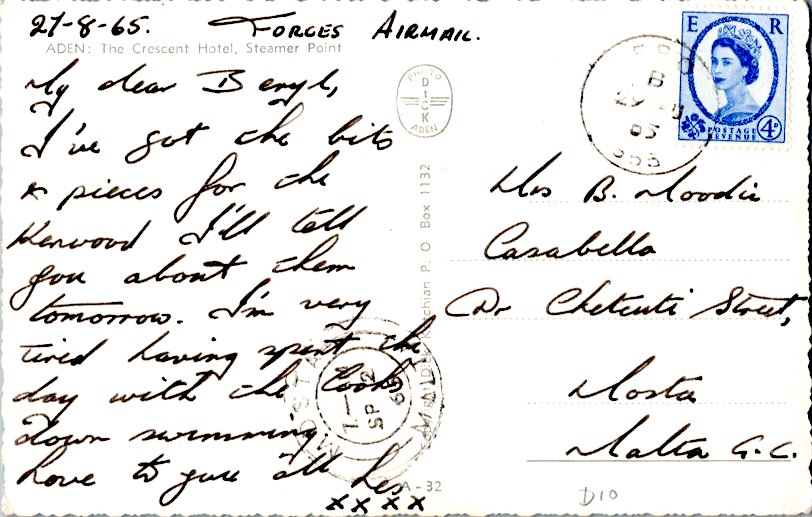 27-8-65. FORCES AIRMAIL.
ADEN: The Crescent Hotel, Steamer Point
My dear Beryl,
I've got the bits
& pieces for the
Kenwood I'll tell
you about them
tomorrow. I'm very
tired having spent the
day with the
down swimming
Love to you all Les
xxxx
PHOTO
DICK
ADEN
P. O Box 1132
A-32
E R
POSTAGE
REVENUE
4D
B
65
Mrs B. Moodie
Casabella
Dr Chetcuti Street,
Mosta
Malta G.C.
MOSTA
SP 2
65
MALTA
D10